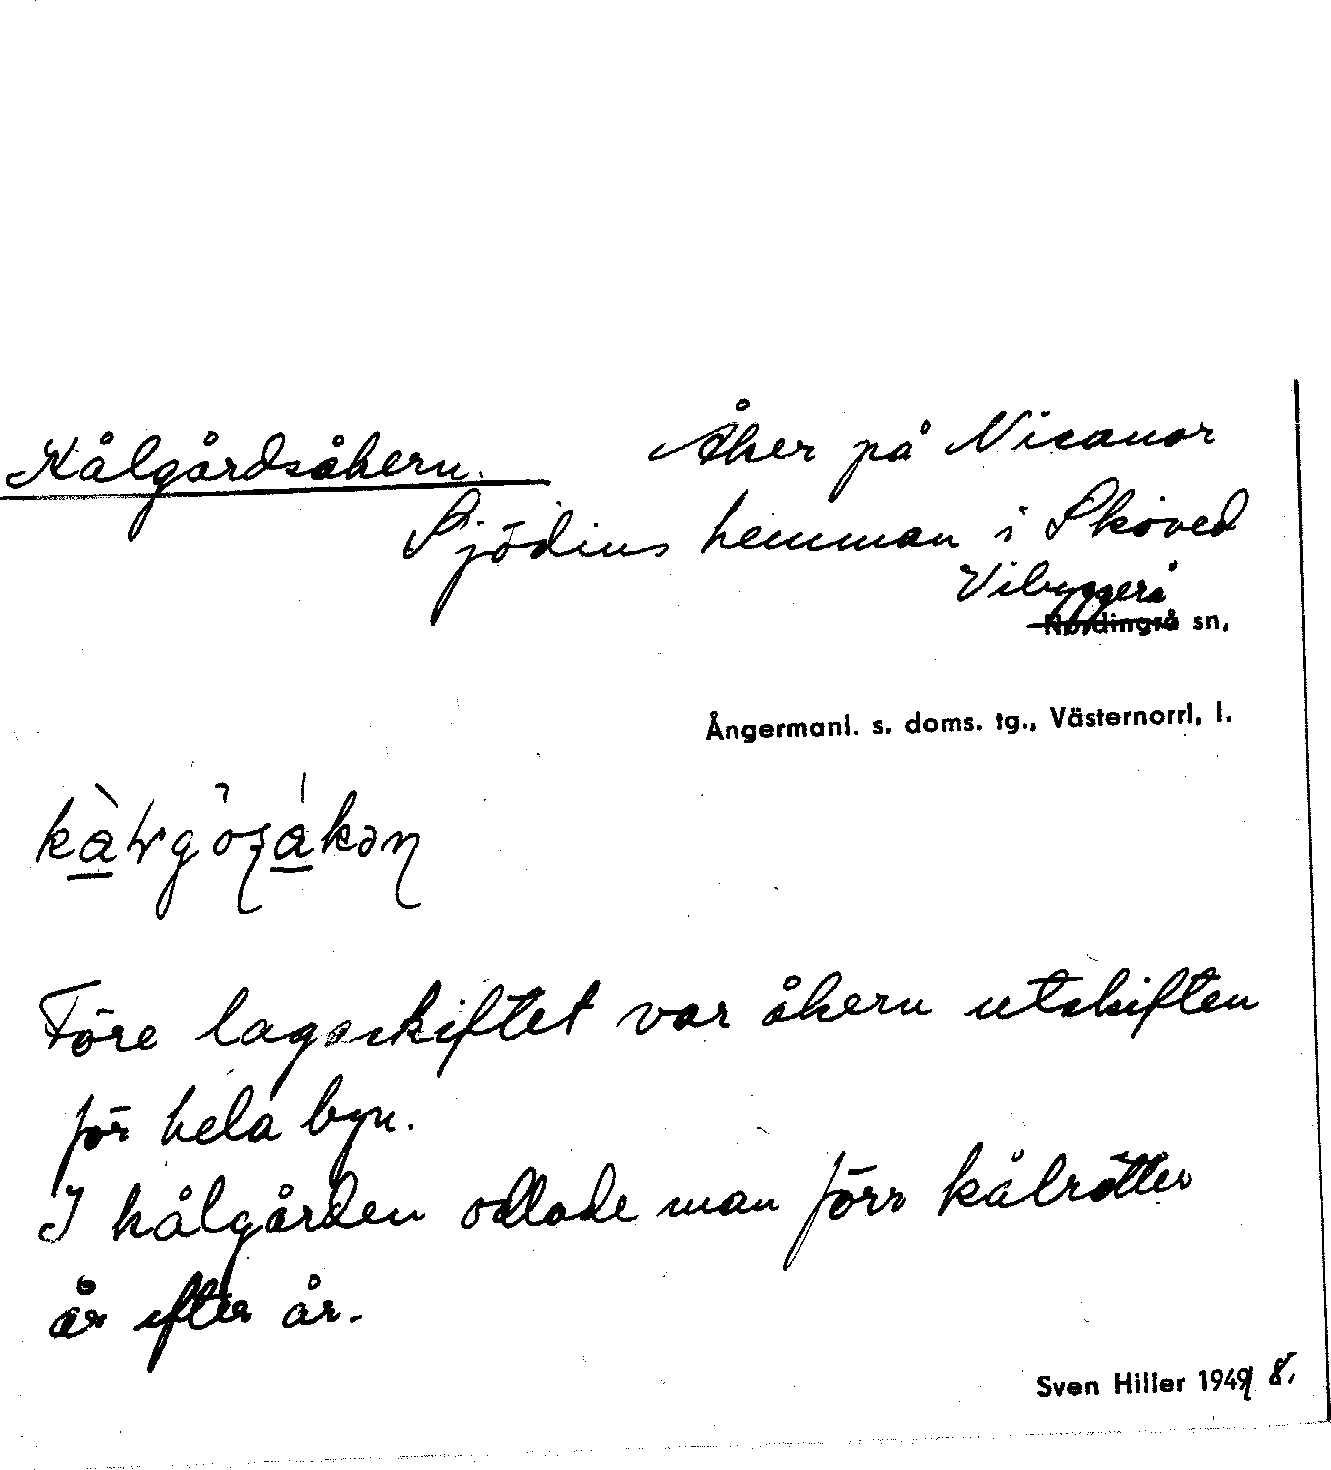 Kålgårdsåkern. Åker på Nicanor
Sjödins hemman i Skoved
Vibyggerå
Nordingrå sn,
Ångermanl. s. doms. tg., Västernorrl. l.
Före lagaskiftet var åkern utskiften
för hela byn.
I kålgården odlade man förr kålrötter
år efter år.
Sven Hiller 1949 8.